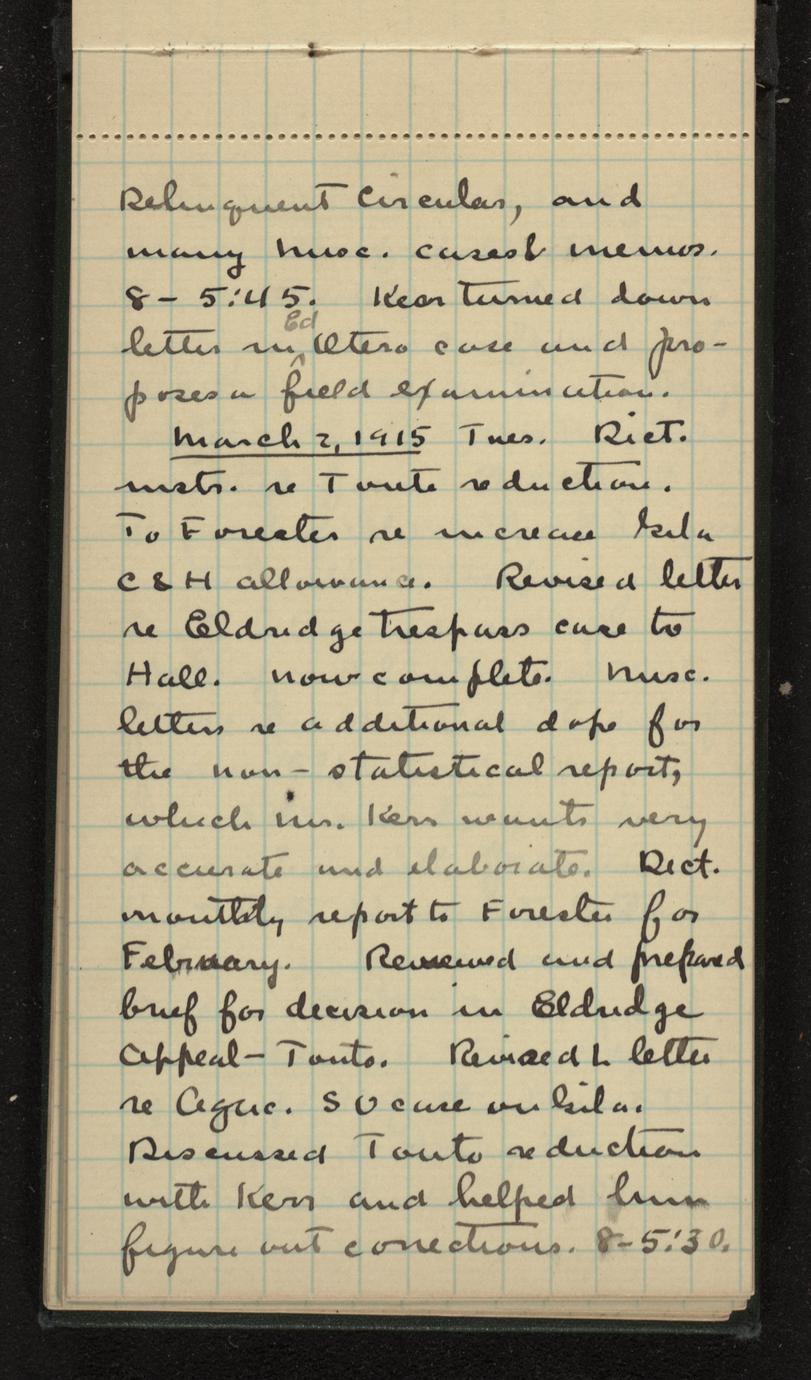 Delinquent Circular, and
many misc. cases & memos.
8 - 5:45. Kerr turned down
letter in Ed Otero case and pro-
poses a field examination.
March 2, 1915 Tues. Dict.
instr. re Tonto reduction.
To Forester re increase Gila
C & H allowance. Revised letter
re Eldredge trespass case to
Hall. Now complete. Misc.
letters re additional dope for
the non-statistical report,
which Mr. Kerr wants very
accurate and elaborate. Dict.
monthly report to Forester for
February. Reviewed and prepared
brief for decision in Eldredge
Appeal - Tonto. Revised L letter
re Agric. S U case on Gila.
Discussed Tonto reduction
with Kerr and helped him
figure out corrections. 8-5:30.